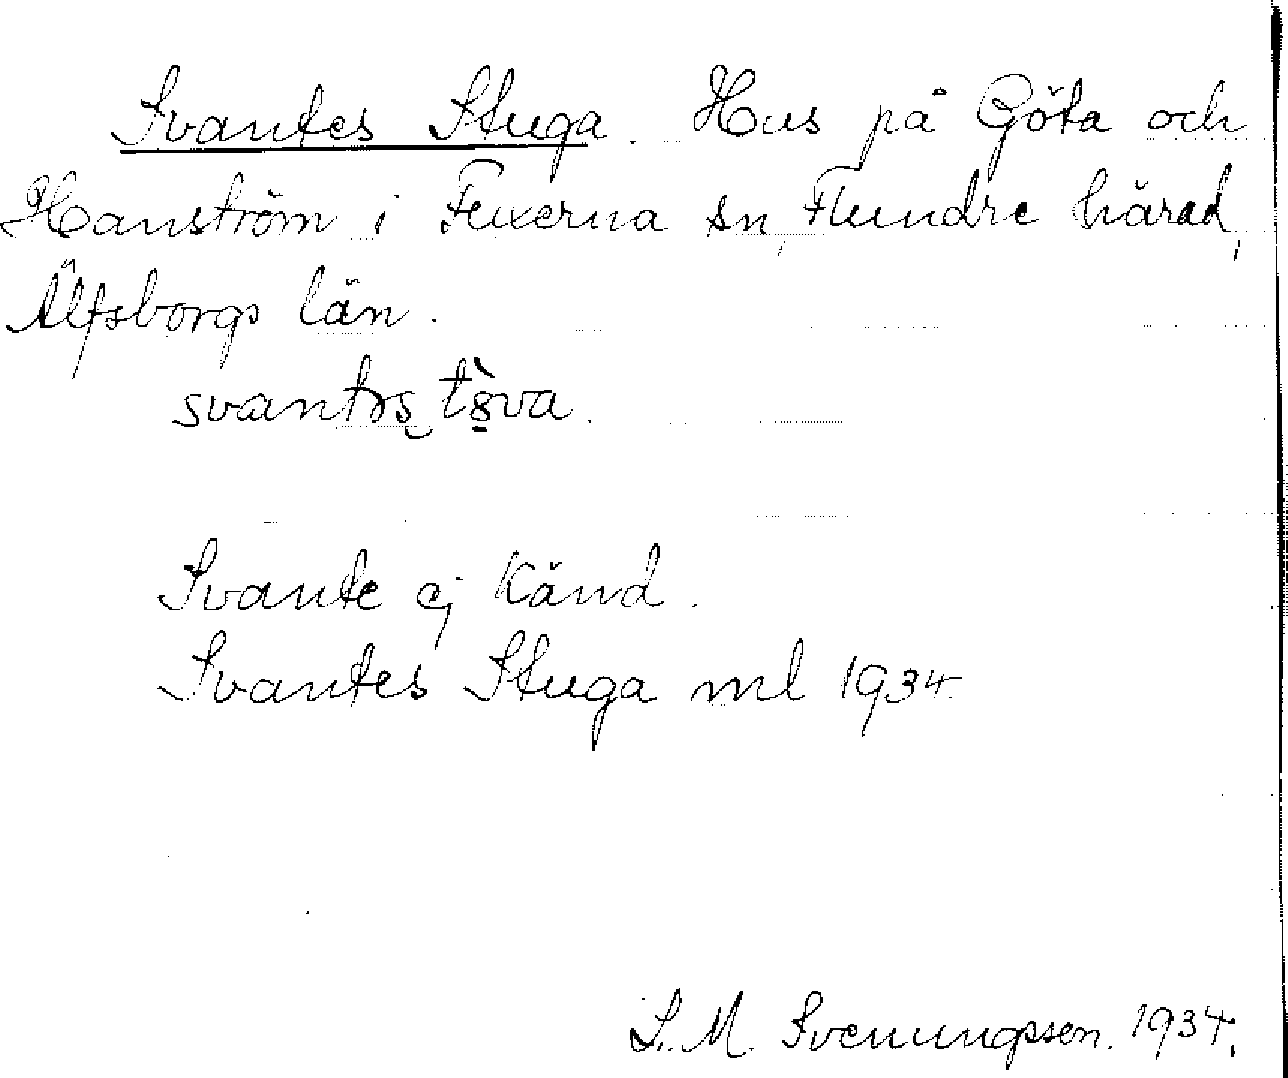 Svantes Stuga. Hus på Göta och
Hanström i Fuxerna sn, Flundre härad,
Älfsborgs län.
Svante ej känd.
Svantes Stuga ml 1934.
S. M. Svenungsson. 1934.